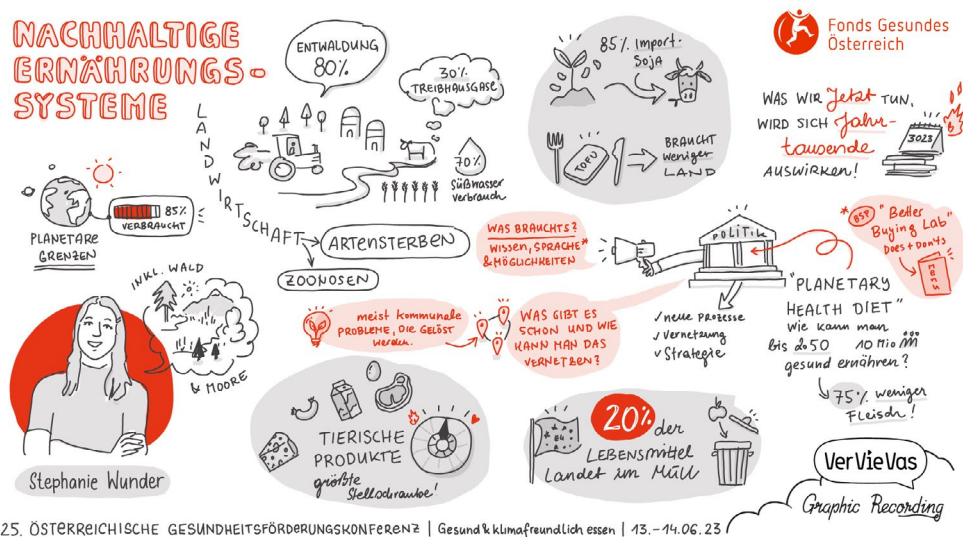 NACHHALTIGE
ERNÄHRUNGS-
SYSTEME
Fonds Gesundes
Österreich
ENTWALDUNG
80%
30%
TREIBHAUSGASE
70%
Süßwasser
verbrauch
LANDWIRTSCHAFT
ARTENSTERBEN
ZOONOSEN
85% Import-
Soja
TOFU
BRAUCHT
weniger
LAND
WAS WIR Jetzt TUN,
WIRD SICH Jahr-
tausende
AUSWIRKEN!
3023
85%
VERBRAUCHT
PLANETARE
GRENZEN
INKL. WALD
& MOORE
Stephanie Wunder
WAS BRAUCHTS?
WISSEN, SPRACHE*
& MÖGLICHKEITEN
POLITIK
✓ neue PROZESSE
✓ Vernetzung
✓ Strategie
* BSP "Better
Buying Lab"
DOES + DON'TS
MENÜ
"PLANETARY
HEALTH DIET"
Wie kann man
bis 2050 10 Mio
gesund ernähren?
75% weniger
FLEISCH!
meist kommunale
PROBLEME, DIE GELÖST
werden.
WAS GIBT ES
SCHON UND WIE
KANN MAN DAS
VERNETZEN?
TIERISCHE
PRODUKTE
größte
Stellschraube!
EU
20% der
LEBENSMITTEL
Landet im MÜLL
VerVieVas
Graphic Recording
25. ÖSTERREICHISCHE GESUNDHEITSFÖRDERUNGSKONFERENZ | Gesund & klimafreundlich essen | 13.-14.06.23